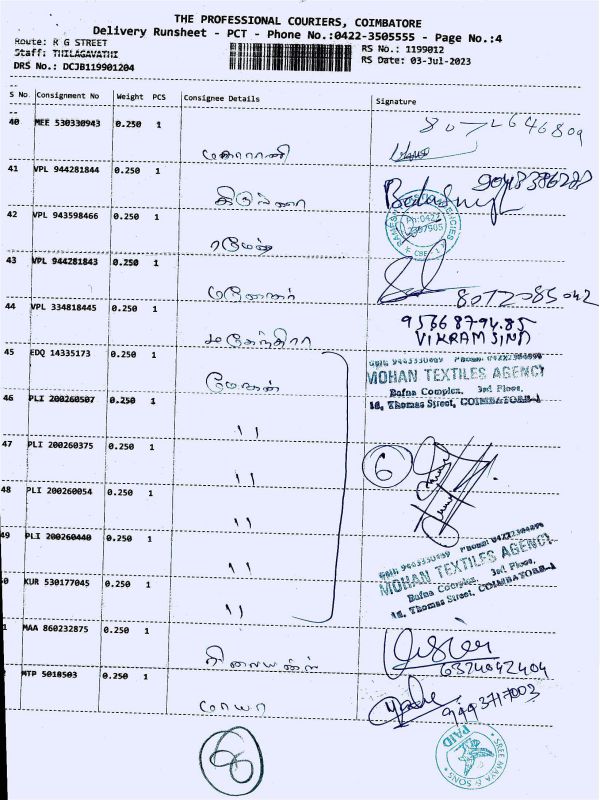 THE PROFESSIONAL COURIERS, COIMBATORE
Delivery Runsheet - PCT - Phone No.:0422-3505555 - Page No.:4
Route: R G STREET
Staff: THILAGAVATHI
DRS No.: DCJB119901204
RS No.: 1199012
RS Date: 03-Jul-2023
S No. Consignment No Weight PCS Consignee Details Signature
40 MEE 530330943 0.250 1
மகாராணி
41 VPL 944281844 0.250 1
42 VPL 943598466 0.250 1
ரமேஷ்
43 VPL 944281843 0.250 1
மனோகர்
8072085042
44 VPL 334818445 0.250 1
மகேந்திரா
VIKRAM SING
45 EDQ 14335173 0.250 1
மோகன்
MOHAN TEXTILES AGENCY
Bafna Complex, 3rd Floor,
18, Thomas Street, COIMBATORE-1
46 PLI 200260507 0.250 1
"
47 PLI 200260375 0.250 1
"
6
48 PLI 200260054 0.250 1
"
49 PLI 200260440 0.250 1
"
MOHAN TEXTILES AGENCY
Bafna Complex, 3rd Floor,
18, Thomas Street, COIMBATORE-1
0 KUR 530177045 0.250 1
"
1 MAA 860232875 0.250 1
6374042404
2 MTP 5010503 0.250 1
மாயா
9493717003
SREE MAYA & SONS
PAID